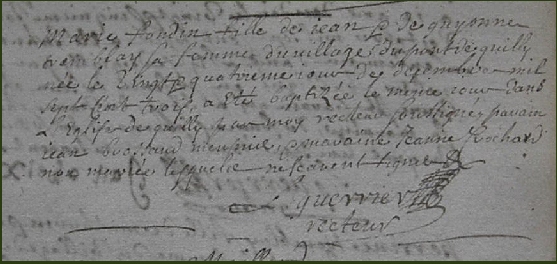 marie fondin fille de jean & de guyonne
tremblay sa femme du village du pont de quilly
née le vingt quatreme iour de desembre mil
sept cent trois a été baptizée le même iour dans
l'Eglise de quilly par moy recteur soussigné, parain
iean marainne jeanne Rochard
non mariée lesquels ne scavent signer
guerrier
recteur